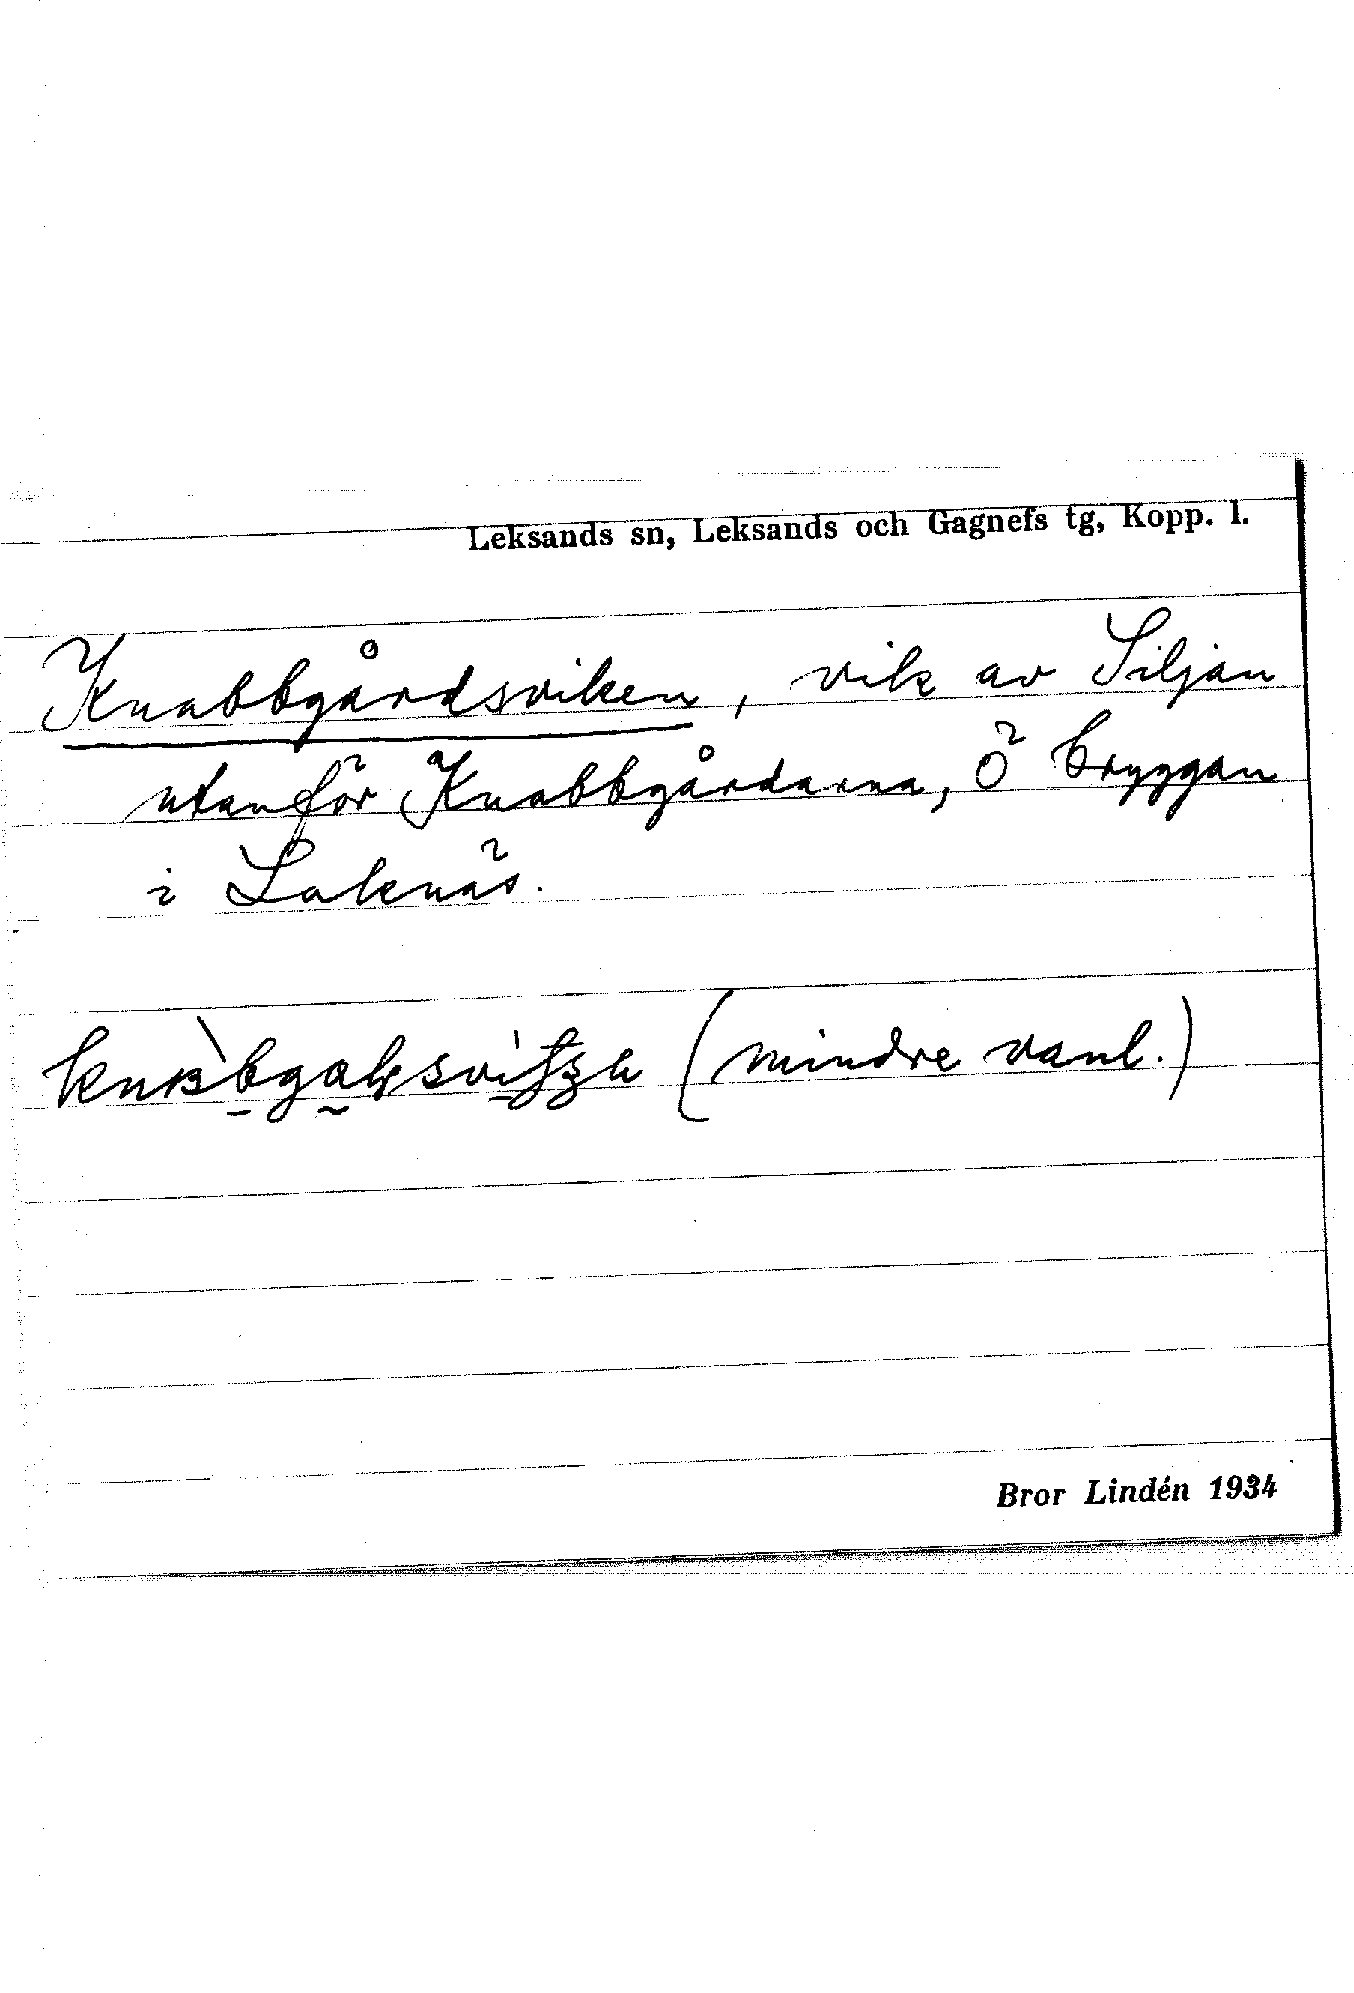 Leksands sn, Leksands och Gagnefs tg, Kopp. l.
Knabbgårdsviken, vik av Siljan
utanför Knabbgårdarna, Ö bryggan
i Laknäs.
(mindre vanl.)
Bror Lindén 1934